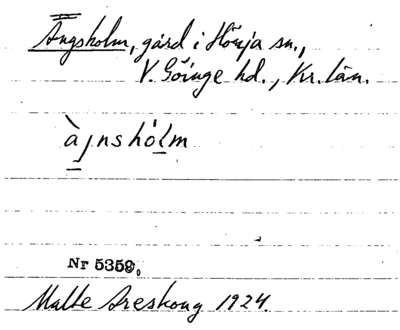 Ängsholm, gård i Hörja sn.,
V. Göinge hd., Kr. län.
àjnshòlm
Nr 5359.
Malte Areskoug 1924.